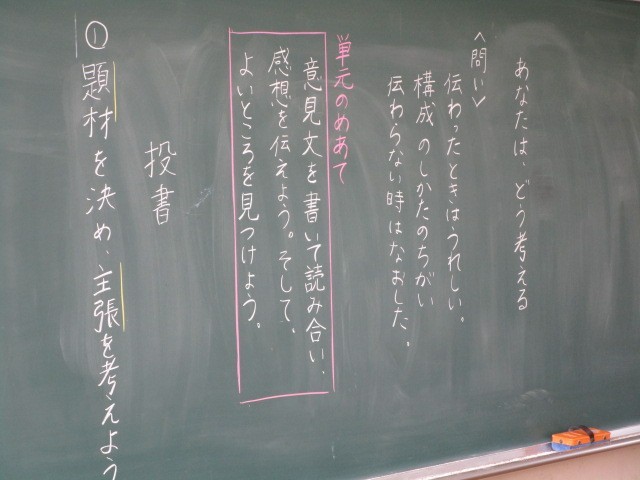 あなたは、どう考える
<問い>
伝わったときはうれしい。
構成のしかたのちがい
伝わらない時はなおした。
単元のめあて
意見文を書いて読み合い、
感想を伝えよう。そして、
よいところを見つけよう。
投書
① 題材を決め、主張を考えよう